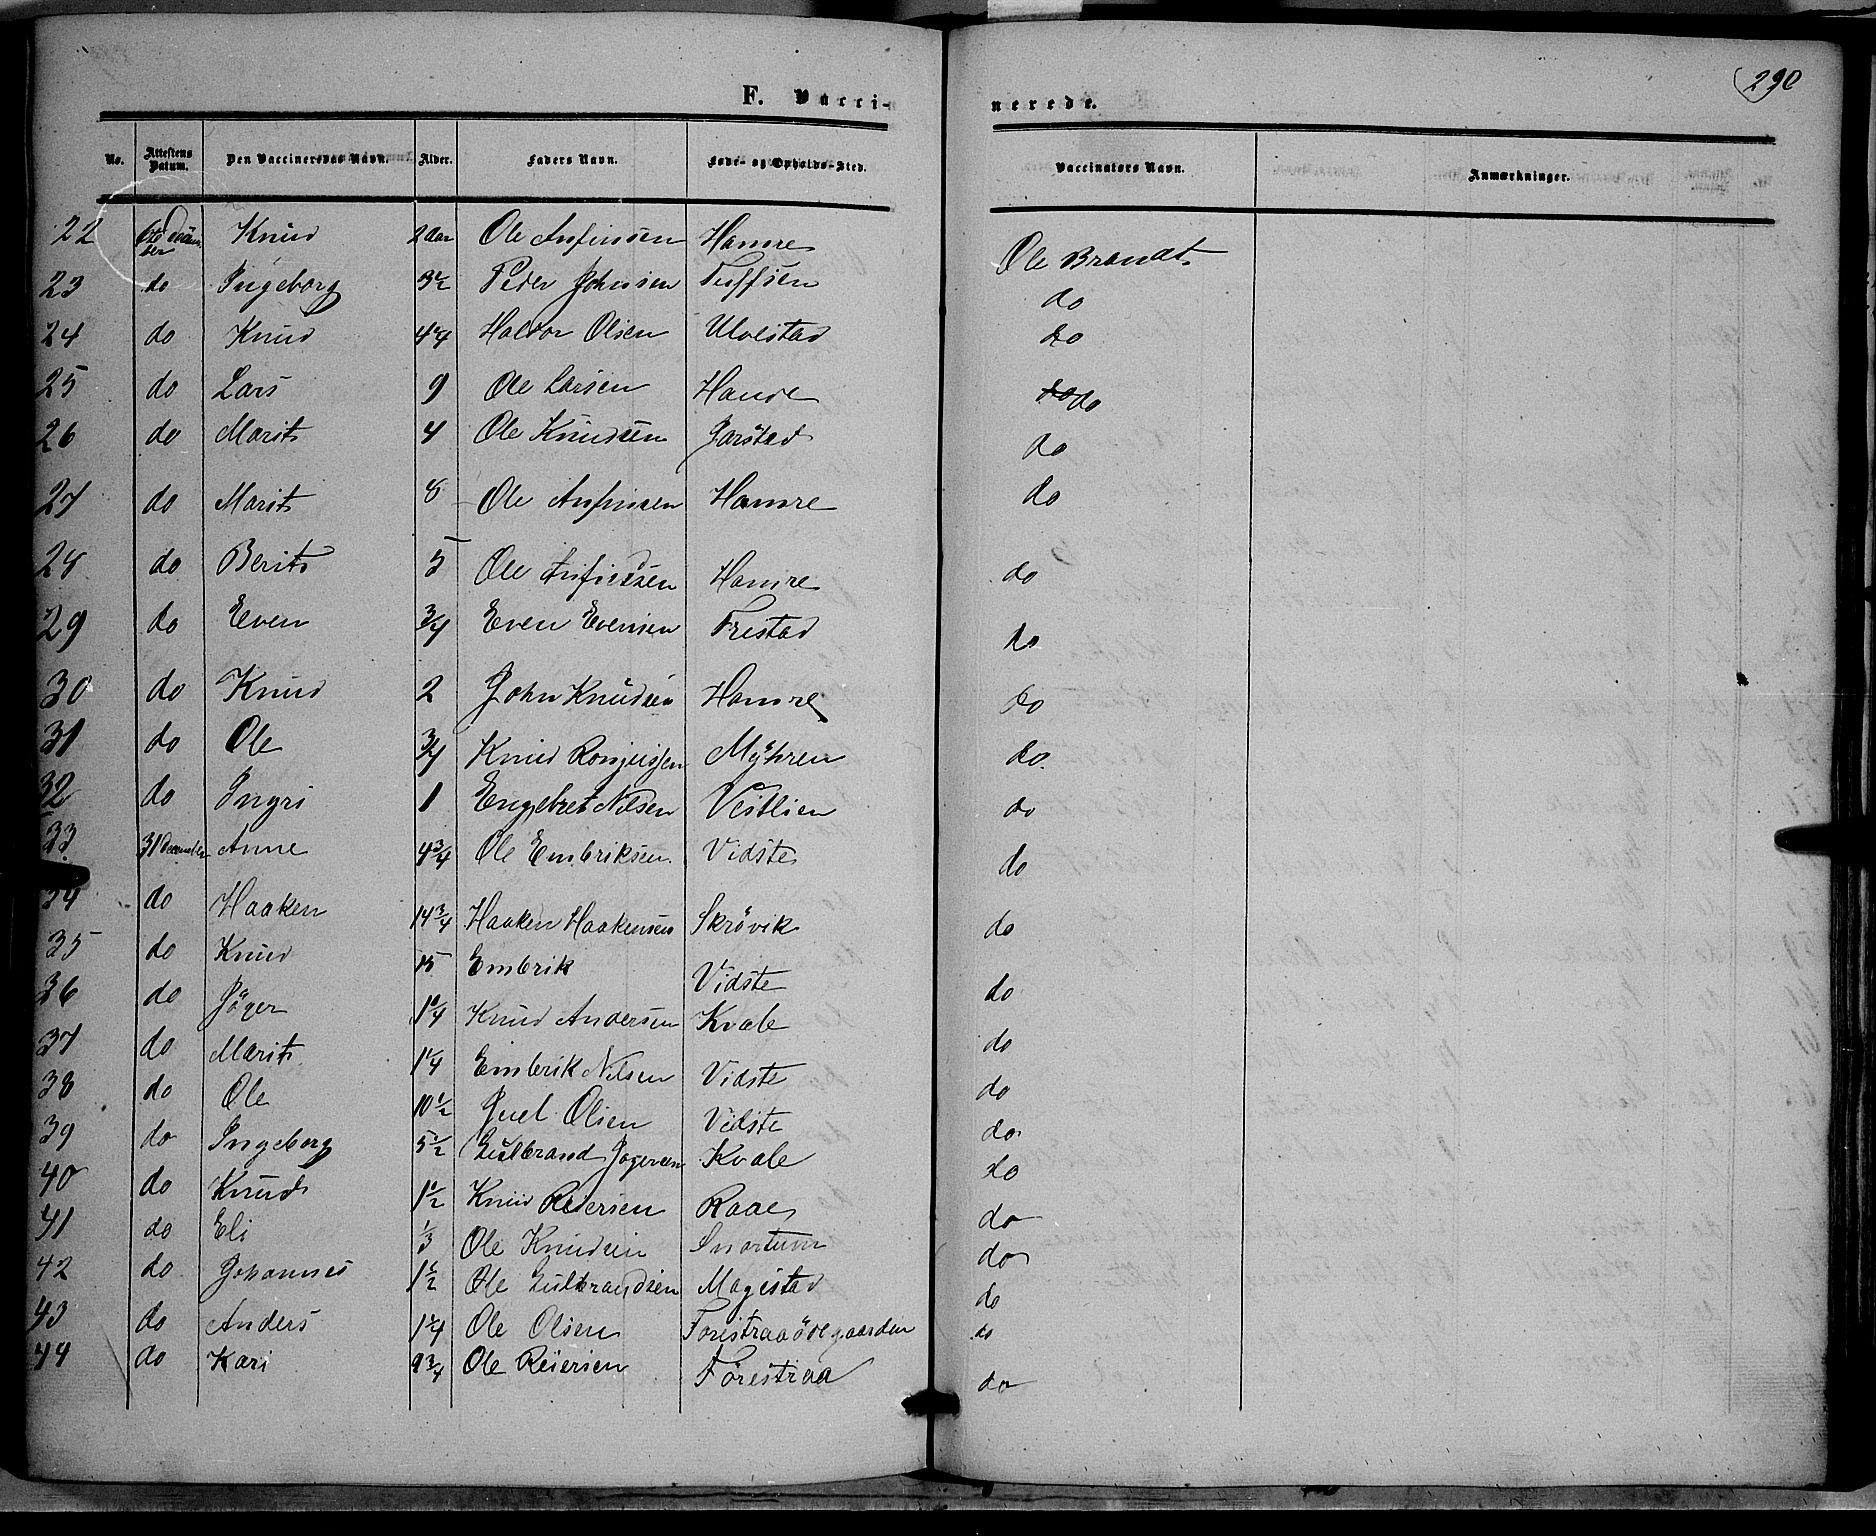 290
F. Vacci-
nerede.
No. Attestens Datum. Den Vaccineredes Navn. Alder. Faders Navn. Føde- og Opholds-Sted. Vaccinators Navn. Anmærkninger.
22 6te December Knud 2 aar Ole Anfinssen Hamre Ole Brandt
23 do Ingeborg 3½ Peder Johnsen do
24 do Knud Halvor Olsen Ulvestad do
25 do Lars 9 Ole Larsen Hande do do
26 do Marit 4 Ole Knudsen Jarstad do
27 do Marit 8 Ole Anfinssen Hamre do
28 do Berit 5 Ole Anfinssen Hamre do
29 do Even ¾ Even Evensen Trestad do
30 do Knud 2 John Knudsen Hamre do
31 do Ole ¾ Knud Myhren do
32 do Ingri 1 Engebret Nilsen Vestlien do
33 31 December Anne 4¾ Ole Embriksen Vidste do
34 do Haaken 14¾ Haaken Haakensen Skrövik do
35 do Knud 15 Embrik Vidste do
36 do Jöger 1¼ Knud Andersen Kvale do
37 do Marit 1¼ Embrik Nilsen Vidste do
38 do Ole 10½ Juel Olsen Vidste do
39 do Ingeborg 5½ Gulbrand Jögersen Kvale do
40 do Knud 1½ Knud Reiersen Raae do
41 do Eli ⅓ Ole Knudsen Snortum do
42 do Johannes 1½ Ole Gulbrandsen Magistad do
43 do Anders 1¼ Ole Olsen Forestraaödegaarden do
44 do Kari 9¾ Ole Reiersen Förestraa do